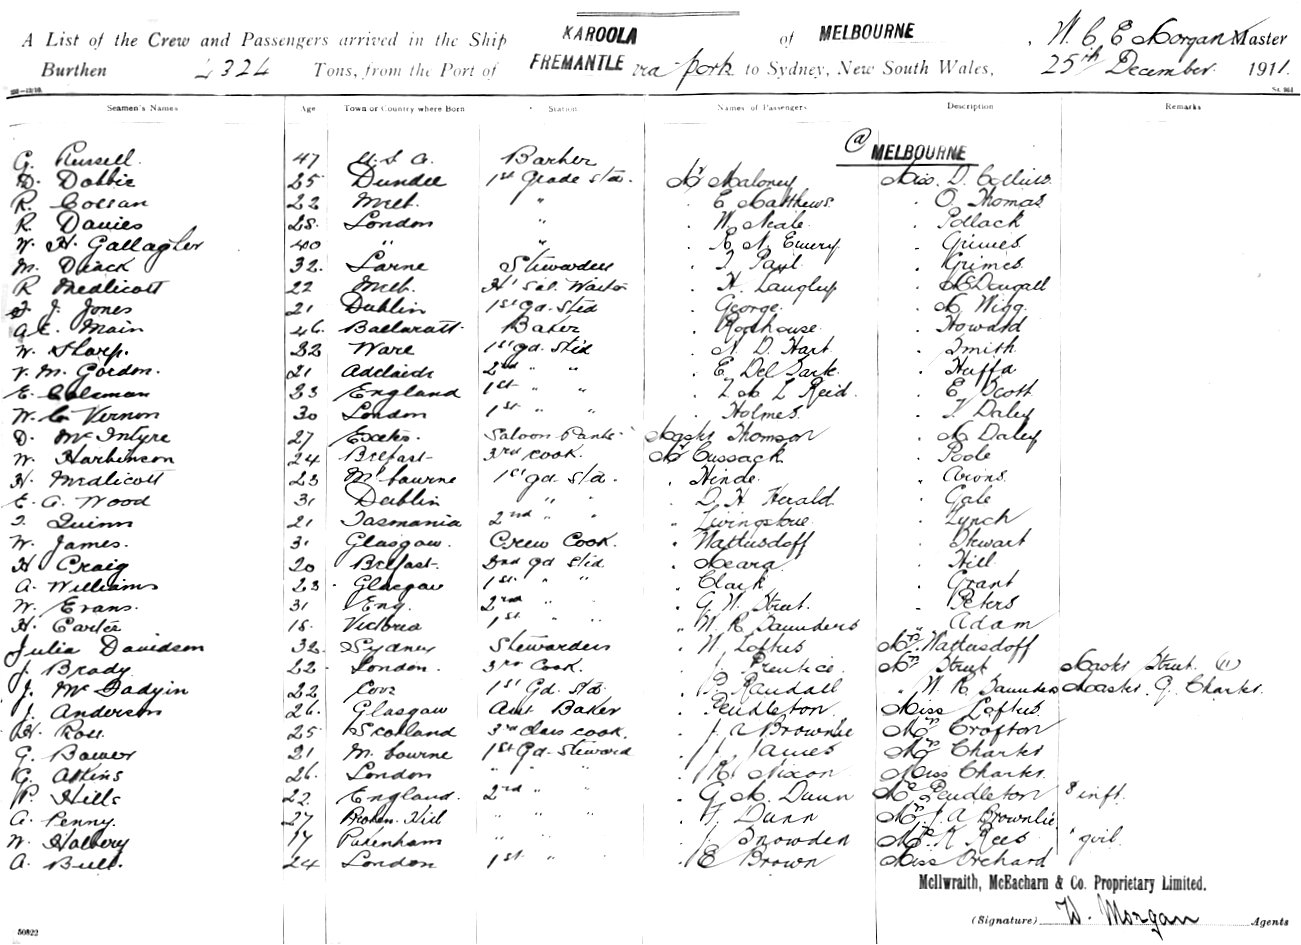 A List of the Crew and Passengers arrived in the Ship KAROOLA of MELBOURNE, W. C. E Morgan Master
Burthen 4324 Tons, from the Port of FREMANTLE via ports to Sydney, New South Wales, 25th December 1911.
Seamen's Names Age Town or Country where Born Station Names of Passengers Description Remarks
@ MELBOURNE
G. Russell. 47 U. S. A. Barber
D. Dobbie 25 Dundee 1st Grade Std. Mr Maloney Miss. D. Collins
R. 22 Melb. " E Matthews O. Thomas
R. Davies 28. London " W. Neale Pollack
W. H. Gallagher 40 " " R. N. Emery Grimes
M. Diack 32. Larne Stewardess T. Paul. Grimes.
R Medlicott 22 Melb. Hd Sal. Waiter H. Langley McDougall
J. Jones 21 Dublin 1st Gd. Std George. M. Wigg.
A. E. Main 46. Ballaratt. Baker Roofhouse Howard
W. Sharp. 32 Ware 1st gd. Std A. D. Hart Smith
V. M. Gordon. 21 Adelaide 2nd " " E Del Sark. Huffa
E. Coleman 23 England 1st " " L Reid. E. Scott
W. C. Vernon 30 London 1st " " Holmes. T. Daley
D. McIntyre 27 Exeter. Saloon Pantr Master Thomson M Daley
W. Harbinson 24 Belfast 3rd Cook. Mr Cussack Poole
H. Medlicott 23 Melbourne 1st gd. Std. Hinde. Arons.
E. A. Wood 31 Dublin " " D. H. Herald Gale
T. Quinn 21 Tasmania 2nd " " Livingstone Lynch
W. James. 31 Glasgow. Crew Cook. Wattusdoff Stewart
H Craig 20 Belfast. 2nd gd Std Meara Hill
A. Williams 23 Glasgow 1st " " Clark. Grant
W. Evans. 31 Eng. 2nd " " G. W. Strut. Peters
H. Carter 18. Victoria 1st " " W. R. Saunders " Adam
Julia Davidson 32. Sydney Stewardess W. Loftus Mrs. Wattusdoff
J. Brady 22 London. 3rd Cook. J. Prentice Mrs Strut Master Strut. (11)
J. McFadyin 22 1st Gd. Std. P. Randall " W. R. Saunders Master G. Charks.
J. Anderson 26. Glasgow Asst Baker Pendleton. Miss Loftus
H. Ross 25 Scotland 3rd class cook. J. A. Brownlie Mrs Crofton
G. Bower 21 Melbourne 1st Gd. Steward J. James Mrs Charks
G. Atkins 26. London " " " R. Nixon. Miss Charks.
P. Hills 22 England. 2nd " " G. M. Dunn Mrs Pendleton & inft.
A. Penny. 27 Broken Hill " " J. Dunn Mrs. J. A Brownlie
W. Halbery 17 Pakenham " " J. Snowden Mrs. K. Rees
A. Bull. 24 London 1st " " E Brown Miss Orchard
McIlwraith, McEacharn & Co. Proprietary Limited.
(Signature) W. Morgan Agents
50822